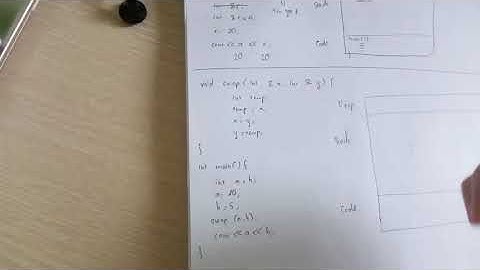 int & x = a;
x = 20;
cout << a << x;
20 20
Stack
Code
main()
void swap( int & x, int & y) {
int temp;
temp = x;
x = y;
y = temp;
}
Heap
Stack
int main() {
int a, b;
a = 10;
b = 5;
swap (a, b);
cout << a << b;
}
Code